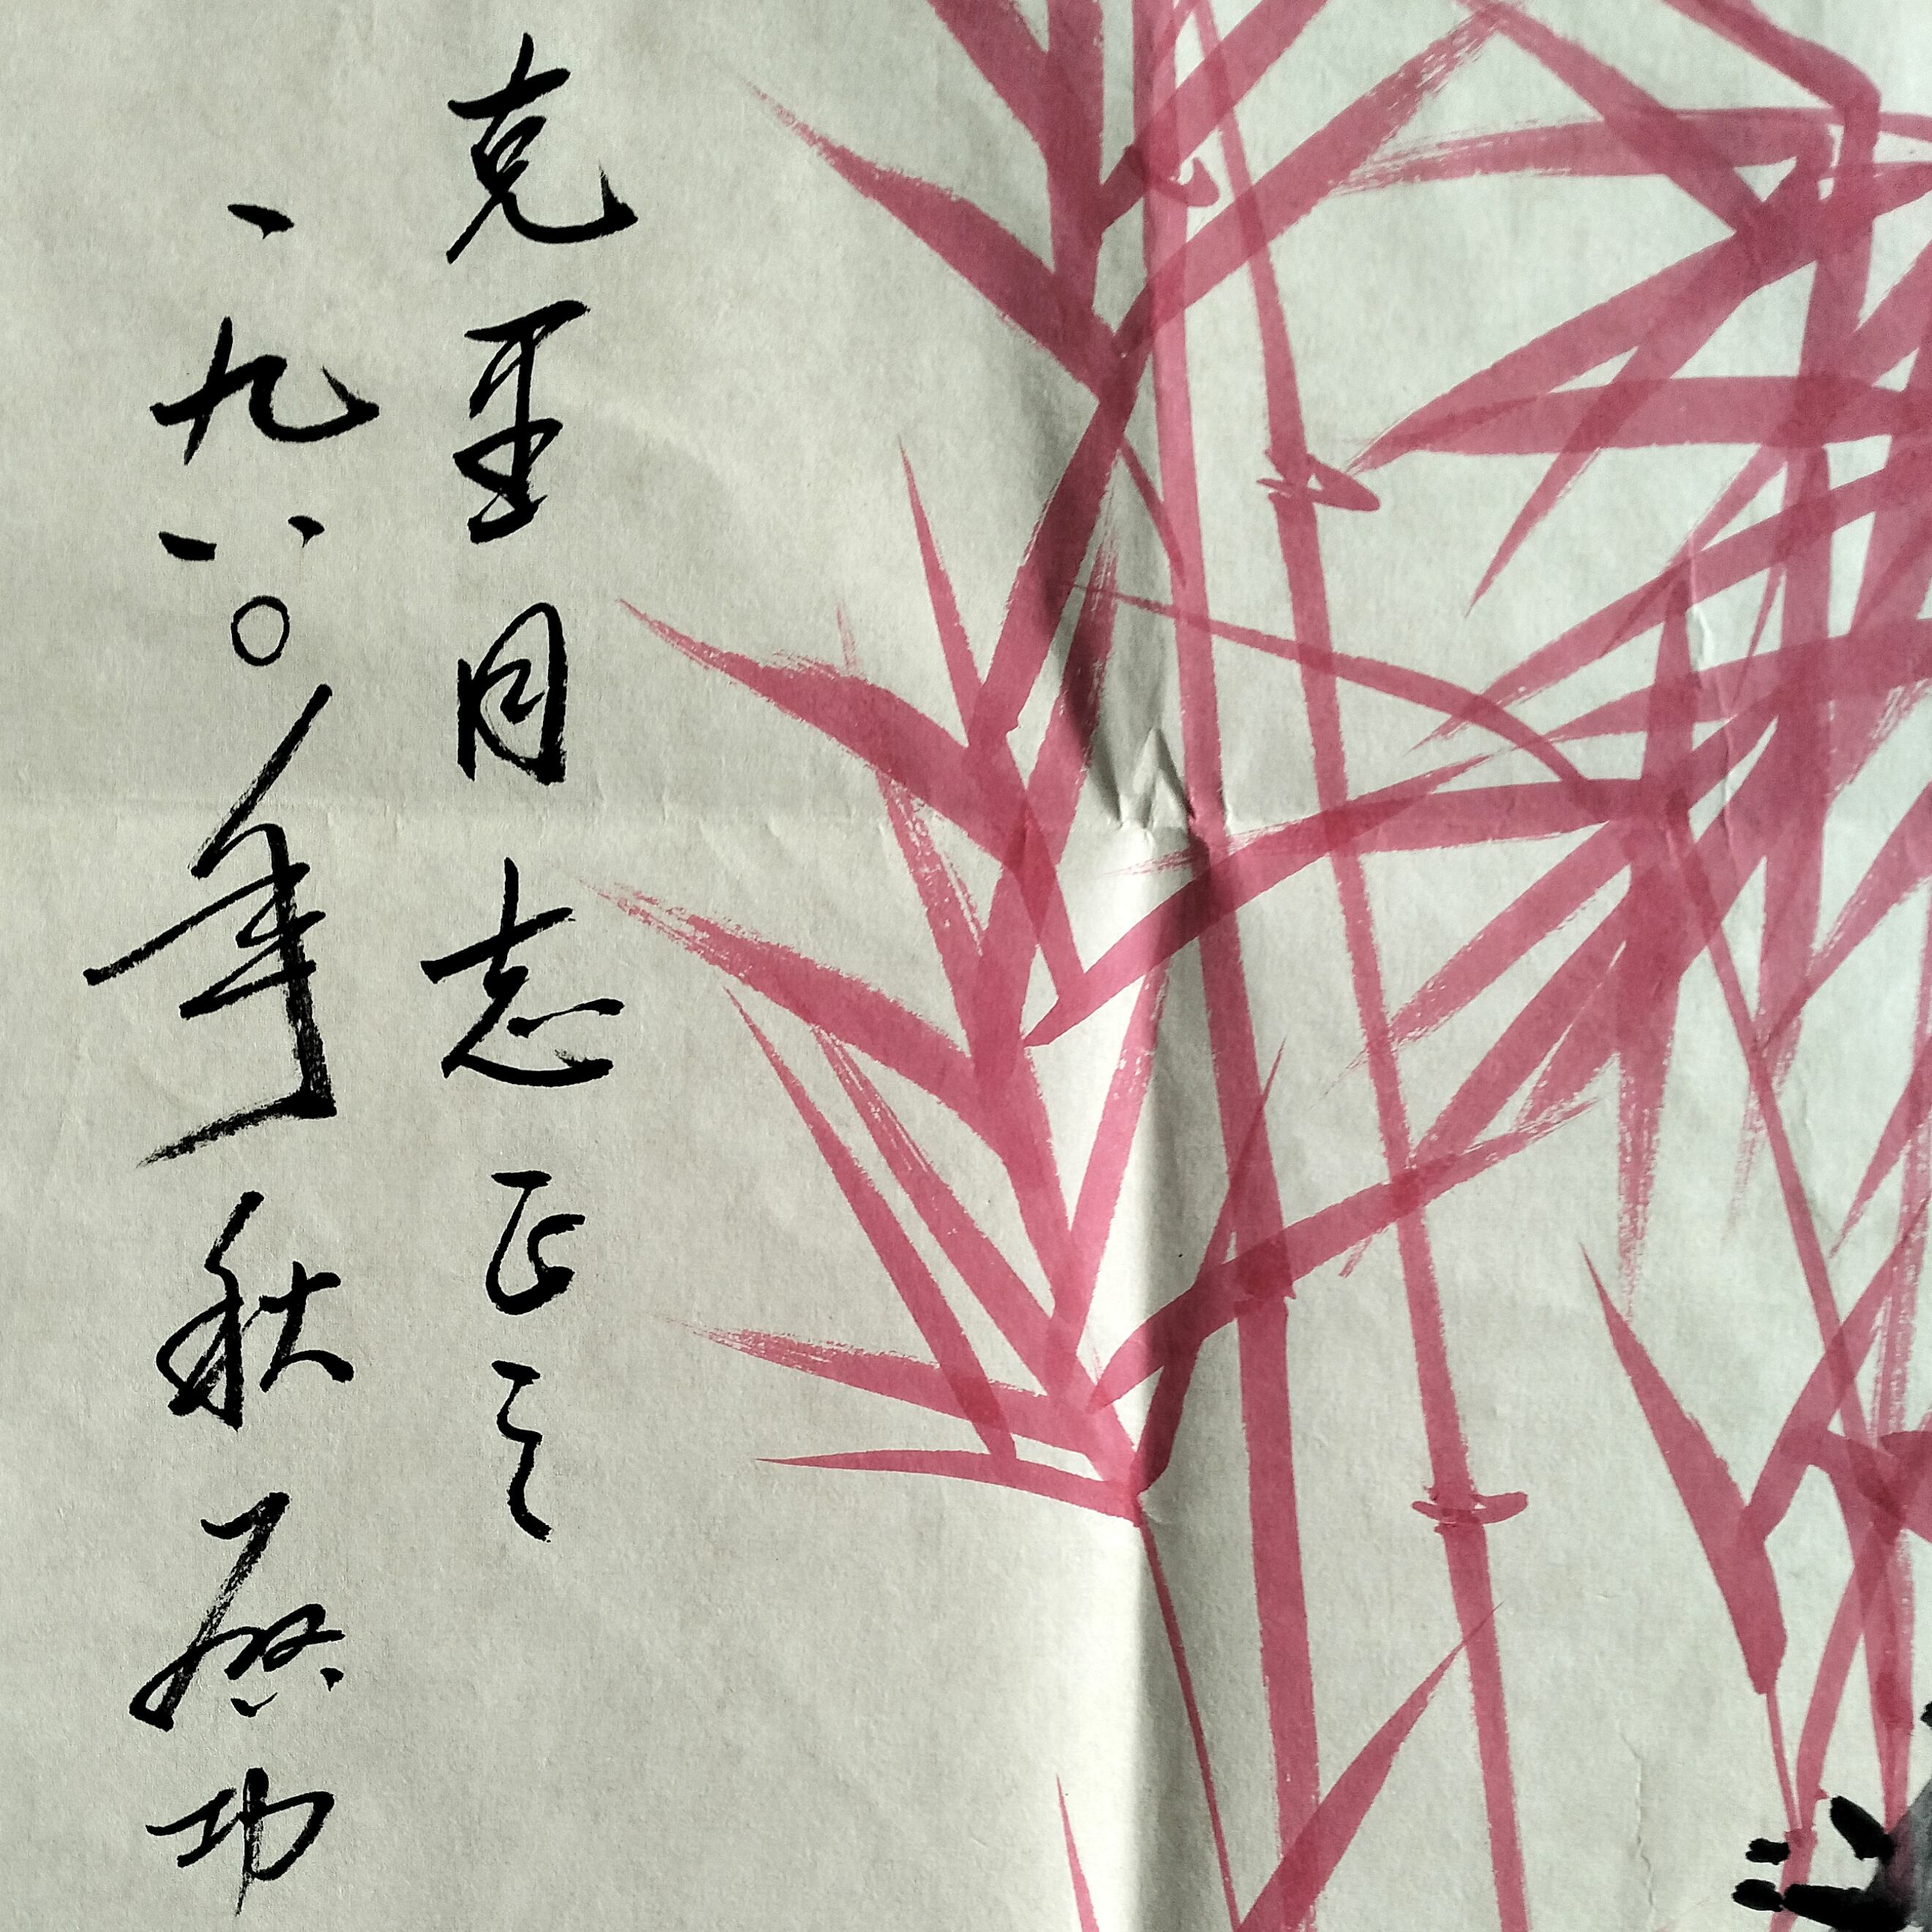 克同志正之
一九八〇年秋啓功